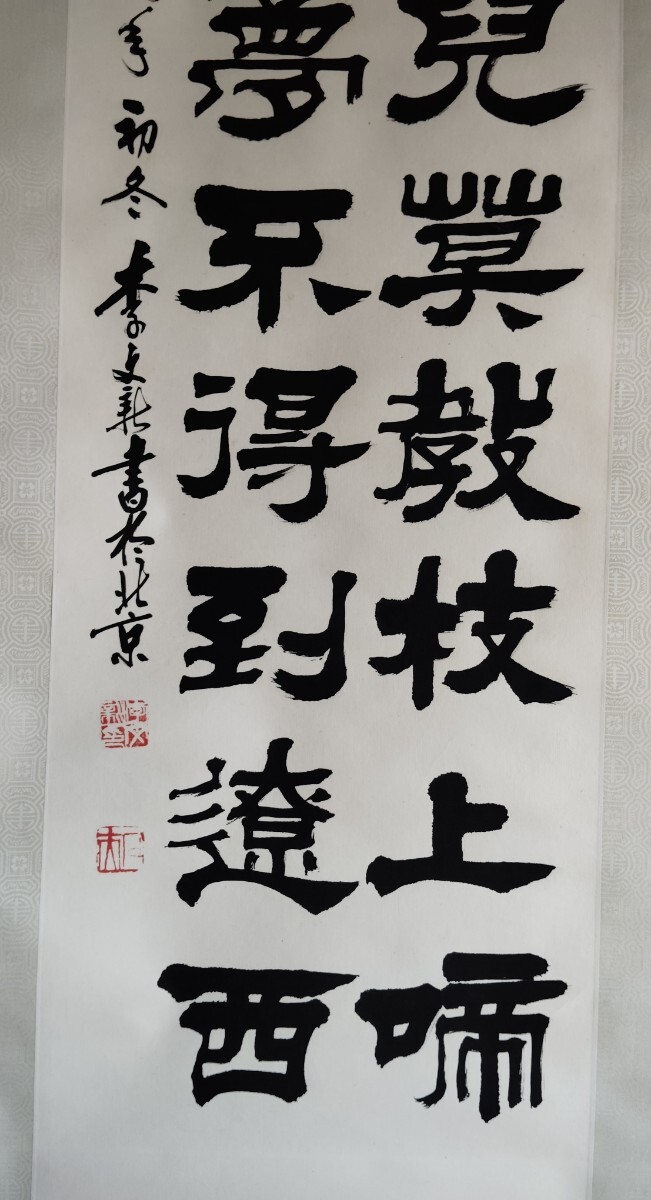 兒莫教枝上啼
夢不得到遼西
年初冬李文新書於北京
李文新印